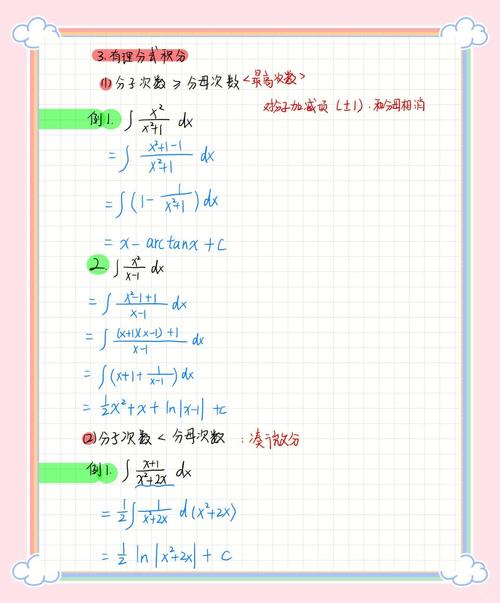 3.有理分式积分
(1)分子次数 ≥ 分母次数 <最高次数>
对分子加减项 (±1),和分母相消
例1. ∫ x²/(x²+1) dx
= ∫ (x²+1-1)/(x²+1) dx
= ∫ (1 - 1/(x²+1)) dx
= x - arctanx + C
2. ∫ x²/(x-1) dx
= ∫ (x²-1+1)/(x-1) dx
= ∫ ((x+1)(x-1)+1)/(x-1) dx
= ∫ (x+1+ 1/(x-1)) dx
= 1/2 x² + x + ln|x-1| + c
(2)分子次数 < 分母次数 :凑微分
例1. ∫ (x+1)/(x²+2x) dx
= 1/2 ∫ 1/(x²+2x) d(x²+2x)
= 1/2 ln|x²+2x| + C